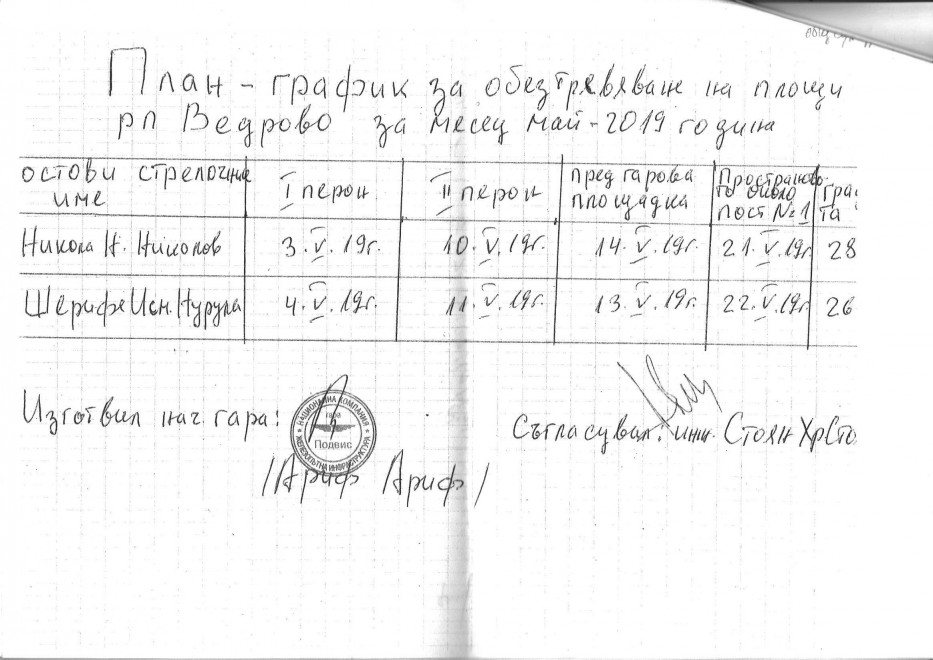 План - график за обезтревяване на площи
рп Ведрово за месец май - 2019 година
остови стрелочние
име
I перон
II перон
пред гарова
площадка
Пространство
то около
пост №1
Гра
та
Никола Н. Николов
3. V. 19г.
10. V. 19г.
14. V. 19г.
21. V. 19г
28
Шерифе Исн. Нурула
4. V. 19г.
11. V. 19г.
13. V. 19г.
22. V. 19г
26
Изготвил нач. гара:
НАЦИОНАЛНА КОМПАНИЯ
гара
Подвис
ЖЕЛЕЗОПЪТНА ИНФРАСТРУКТУРА
Съгласувал: инж. Стоян Христо
/Ариф Ариф/